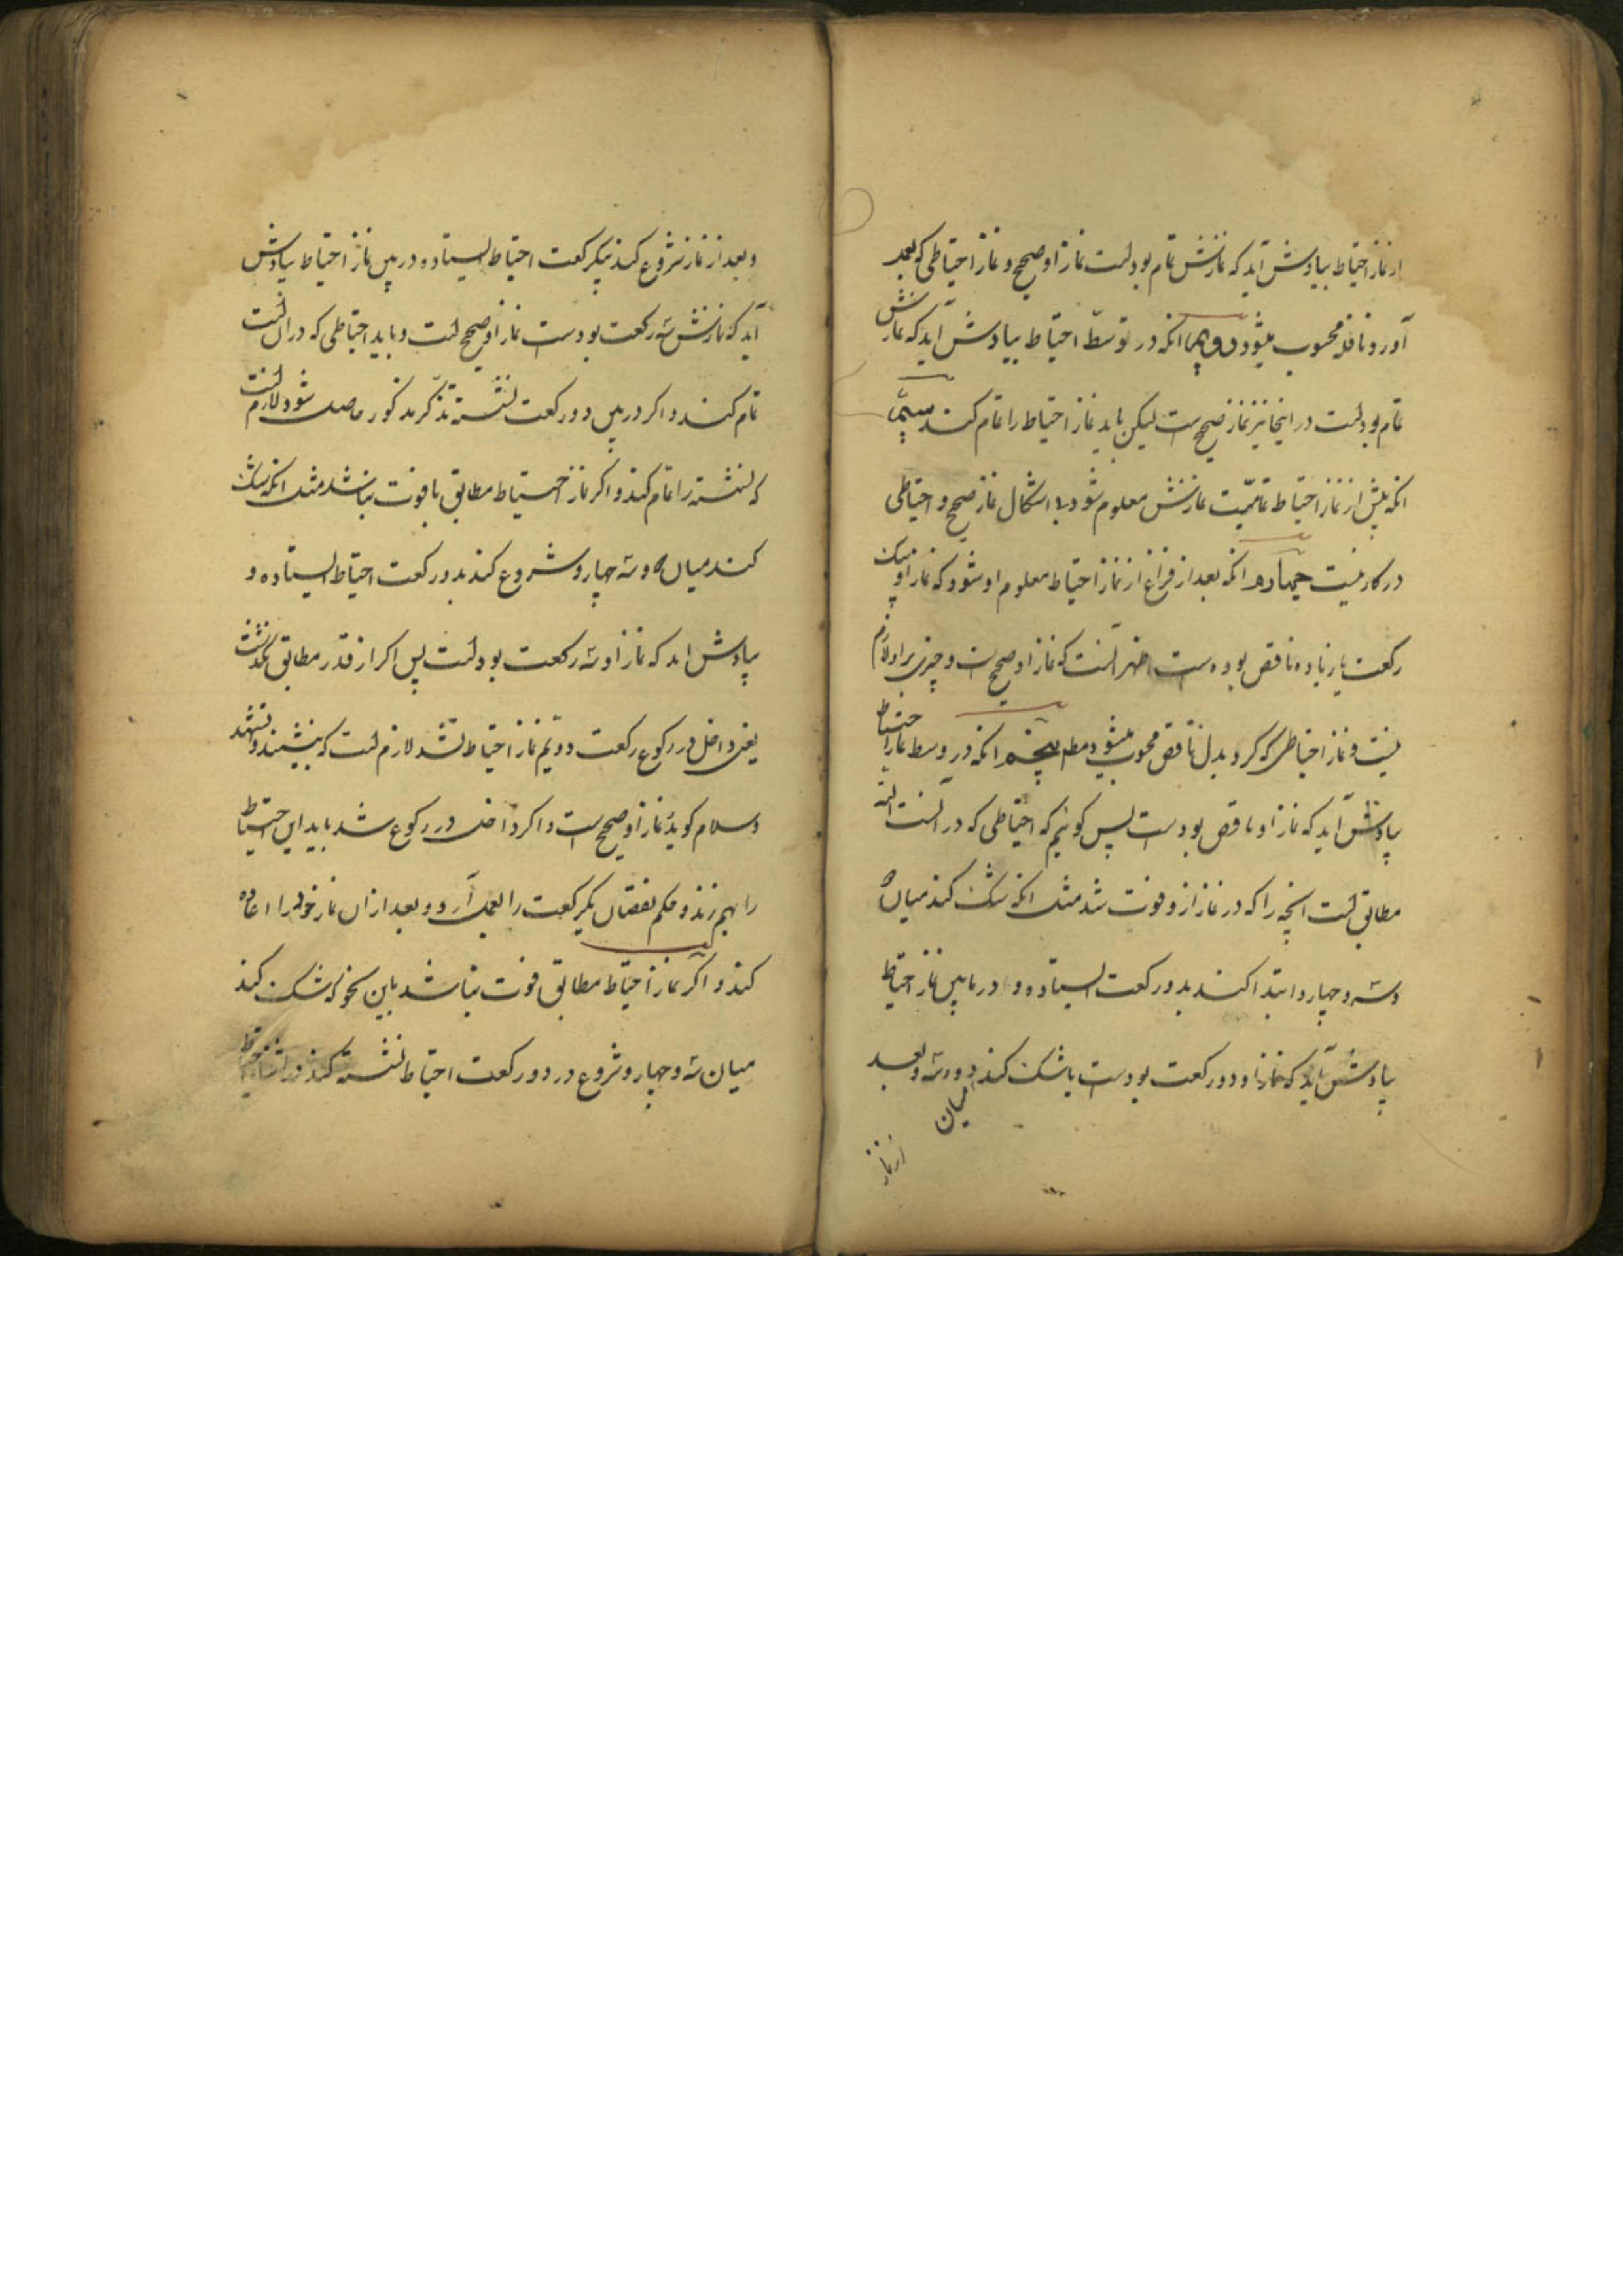 از نماز احتیاط بیادش آید که نمازش تمام بوده است نماز او صحیح و نماز احتیاطی که بعمل
آورد نافله محسوب میشود دویم انکه در توسط احتیاط بیادش آید که نمازش
تمام بوده است در اینجا نیز نماز صحیح است لیکن باید نماز احتیاط را تمام کند سیم
انکه پیش از نماز احتیاط تمامیت نمازش معلوم شود بلا اشکال نماز صحیح و احتیاطی
در کار نیست چهارم انکه بعد از فراغ از نماز احتیاط معلوم او شود که نماز او یک
رکعت یا زیاده ناقص بوده است اظهر آنست که نماز او صحیح است و چیزی بر او لازم
نیست و نماز احتیاطی که کرد بدل ناقص محسوب میشود مط پنجم انکه در وسط نماز احتیاط
بیادش آید که نماز او ناقص بوده است پس گوئیم که احتیاطی که در آنست البته
مطابق است آنچه را که در نماز از او فوت شد مثل انکه شک کند میان ۲
و سه و چهار و ابتدا کند بدو رکعت ایستاده و در مابین نماز احتیاط
بیادش آید که نماز او دو رکعت بوده است یا شک کند میان دو و سه و بعد
از نماز
و بعد از نماز شروع کند بیکرکعت احتیاط ایستاده در بین نماز احتیاط بیادش
آید که نمازش سه رکعت بوده است نماز او صحیح است و باید احتیاطی که در آن است
تمام کند و اگر در بین دو رکعت نشسته تذکر مذکور حاصل شود لازم است
که نشسته را تمام کند و اگر نماز احتیاط مطابق با فوت نباشد مثل انکه شک
کند میان ۲ و سه چهار و شروع کند بدو رکعت احتیاط ایستاده و
بیادش اید که نماز او سه رکعت بوده است پس اگر از قدر مطابق نگذشت
یعنی داخل در رکوع رکعت دویم نماز احتیاط نشد لازم است که بنشیند و تشهد
و سلام گوید نماز او صحیح است و اگر داخل در رکوع شد باید این احتیاط
را بهم زند و حکم نقصان یکرکعت را بعمل آرد و بعد از ان نماز خود را اعاده
کند و اگر نماز احتیاط مطابق فوت نباشد باین نحو که شک کند
میان سه و چهار و شروع در دو رکعت احتیاط نشسته کند